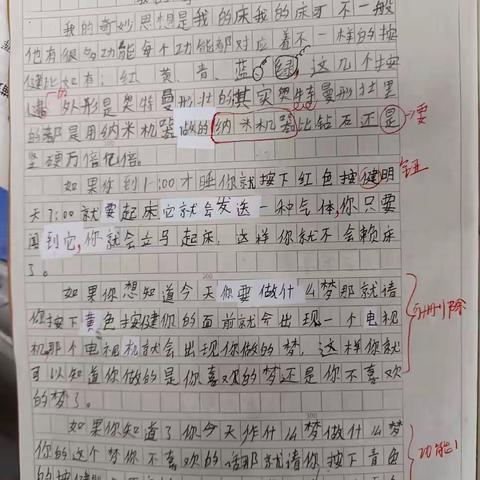 我的奇妙思想是我的床我的床可不一般
他有很多功能每个功能都对应着不一样的按
键比如有：红、黄、青、蓝、绿，这几个按
键。外形是奥特曼形壮的其实奥特曼形壮里
的都是用纳米机器做的纳米机器比钻石还是
要
坚硬万倍亿倍。
如果你到1:00才睡你就按下红色按键明
钮
天7:00就要起床它就会发送一种气体,你只要
闻到它,你就会立马起床，这样你就不会赖床
了。
如果你想知道今天你要做什么梦那就请
你按下黄色按键你的面前就会出现一个电视
删除
机,那个电视机就会出现你做的梦，这样你就
可以知道你做的是你喜欢的梦还是你不喜欢
的梦了。
如果你知道了你今天作什么梦做什么梦
你的这个梦你不喜欢的话那就请你按下青色
功能1
的按键